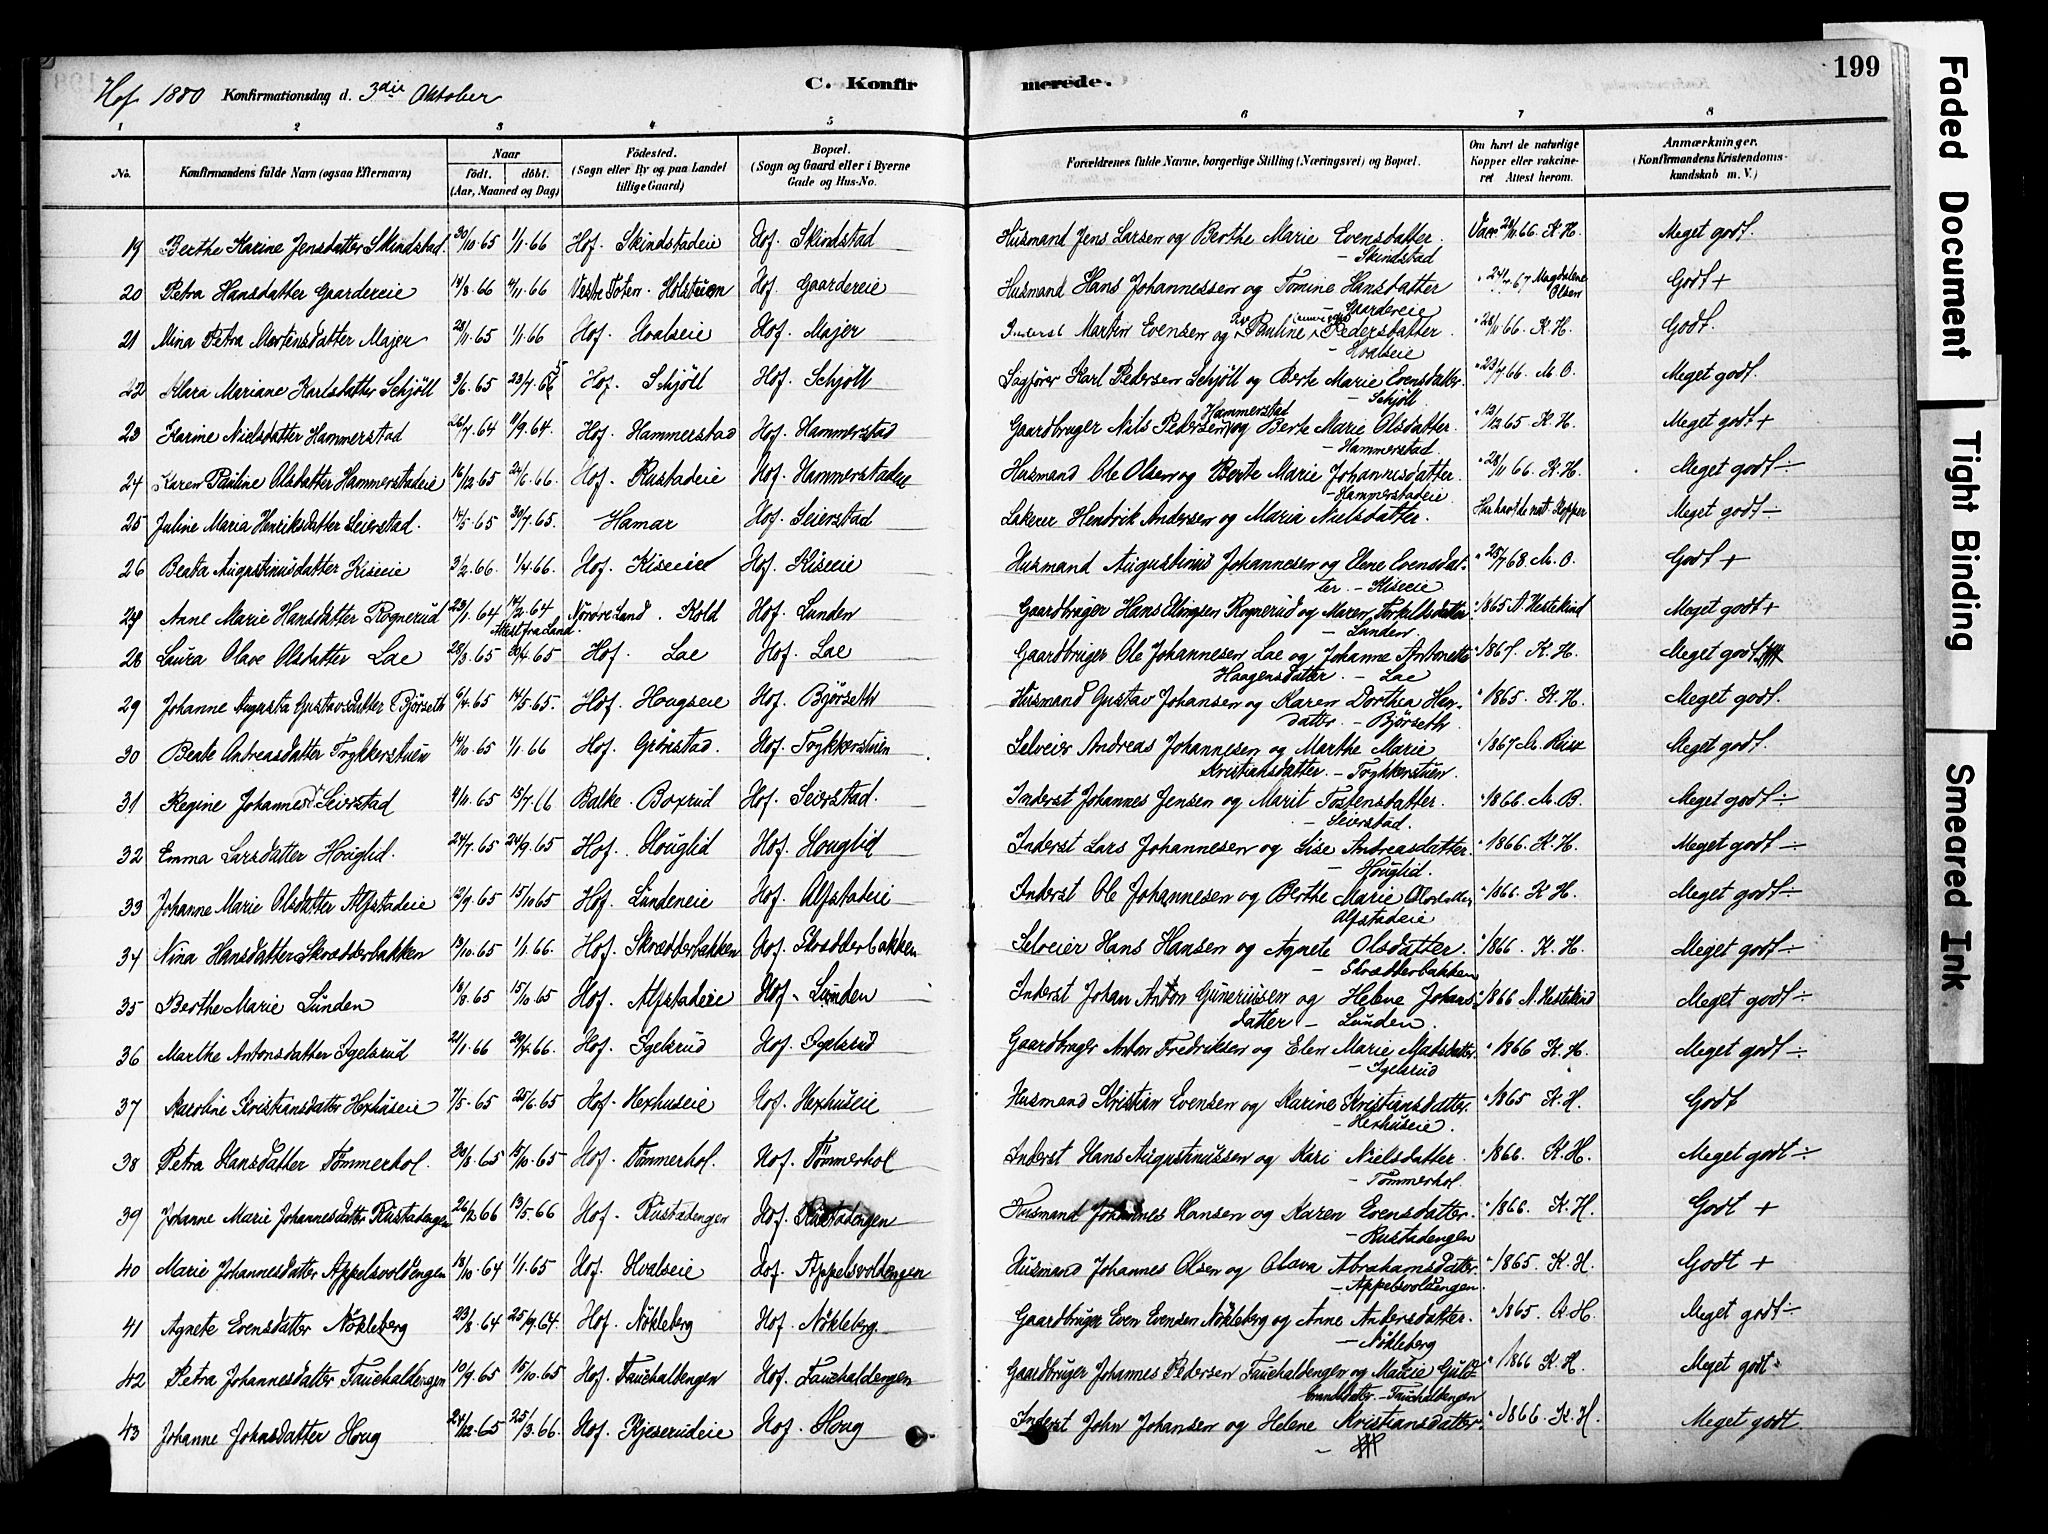 Hof 1880 Konfirmationsdag d. 3die Oktober C. Konfirmerede. 199
1 2 3 4 5 6 7 8
No. Konfirmandens fulde Navn (ogsaa Efternavn) Naar født. døbt. (Aar, Maaned og Dag) Fødested. (Sogn eller By og paa Landet tillige Gaard) Bopæl. (Sogn og Gaard eller i Byerne Gade og Hus-No. Forældrenes fulde Navne, borgerlige Stilling (Næringsvei) og Bopæl. Om havt de naturlige Kopper eller vakcineret Attest herom. Anmærkninger. (Konfirmandens Kristendomskundskab m. V.)
19 Berthe Karine Jensdatter Skindstad 30/10 65 1/1 66 Hof. Skindstadeie Hof. Skindstad Husmand Jens Larsen og Berthe Marie Evensdatter. – Skindstad Vacc 24/11 66. K. H. Meget godt.
20 Petra Hansdatter Gaardereie 14/8 66 4/11 66 Vestre Toten. Hof. Gaardereie Husmand Hans Johannessen og Tomine Hansdatter – Gaardereie " 24/4 67 Magdalene Olsen Godt +
21 Mina Petra Martinsdatter Majer 28/11 65 1/1 66 Hof. Hvalseie Hof. Majer Inderst Martin Evensen og Pauline Pedersdatter – Hvalseie " 28/11 66. K. H. Godt.
22 Klara Mariane Karlsdatter Schjöll 3/6 65 23/7 65 Hof. Schjöll Hof. Schjöll Sagfører Karl Pedersen Schjöll og Berte Marie Evensdatter. – Schjöll " 23/7 66. M. O. Meget godt.
23 Karine Nielsdatter Hammerstad 26/7 64 11/9 64. Hof. Hammerstad Hof. Hammerstad Gaardbruger Nils Pedersen Hammerstad og Berte Marie Olsdatter. – Hammerstad " 13/12 65 K. H. Meget godt +
24 Karen Pauline Olsdatter Hammerstadeie 16/12 65 24/6 66. Hof. Rustadeie Hof. Hammerstadeie Husmand Ole Olsen og Berte Marie Johannesdatter. – Hammerstadeie " 28/11 66. K. H. Meget godt ÷
25 Juline Maria Henriksdatter Seierstad. 14/5 65 30/7 65. Hamar Hof. Seierstad Lakerer Hendrik Andersen og Maria Nielsdatter. Har havt de nat. Kopper Meget godt ÷
26 Beata Augustinusdatter Kiseeie 3/2 66. 1/4 66. Hof. Kiseeie Hof. Kiseeie Husmand Augustinus Johannesen og Elene Evensdatter – Kiseeie " 25/7 68. M. O. Godt +
27 Anne Marie Hansdatter Rognerud 23/1 64 14/2 64 Attest fra Land. Nordre Land. Kold Hof. Lunden Gaardbruger Hans Rognerud og Maren Torkildsdatter. – Lunden " 1865 A. Hestekind Meget godt +
28 Laura Olave Olsdatter Lae 28/3 65 30/4 65 Hof. Lae Hof. Lae Gaardbruger Ole Johannesen Lae og Johanne Antonette Haagensdatter. – Lae " 1867. K. H. Meget godt
29 Johanne Augusta Gustavsdatter Björseth 6/4 65 14/5 65. Hof. Hougseie Hof. Björseth Husmand Gustav Johansen og Karen Dorthea Hansdatter – Björseth " 1865. K. H. Meget godt.
30 Beate Andreasdatter Trykkerstuen 14/10 65 1/1 66 Hof. Grönstad. Hof. Trykkerstuen Selveier Andreas Johannesen og Marthe Marie Kristiansdatter. – Trykkerstuen. " 1867 Meget godt.
31 Regine Johannesd. Seierstad 4/11 65 15/7 66 Balke. Boxrud Hof. Seierstad. Inderst Johannes Jensen og Marit Tostensdatter. – Seierstad. " 1866. M. B. Meget godt ÷
32 Emma Larsdatter Houglid. 24/7 65 24/9 65 Hof. Houglid Hof. Houglid Inderst Lars Johannesen og Lise Andreasdatter. – Houglid. " 1866. K. H. Meget godt ÷
33 Johanne Marie Olsdatter Alfstadeie 12/9 65 15/10 65 Hof. Lundeneie Hof. Alfstadeie Inderst Ole Johannesen og Berthe Marie Olsdatter Alfstadeie " 1866. K. H. Meget godt ÷
34 Nina Hansdatter Skrædderbakken 13/10 65 1/1 66. Hof. Skrædderbakken Hof. Skrædderbakken Selveier Hans Hansen og Agnete Olsdatter. – Skrædderbakken " 1866. K. H. Meget godt ÷
35 Berthe Marie Lunden 16/8 65 15/10 65 Hof. Alfstadeie Hof. Lunden Inderst Johan Anton Guneriusen og Helene Johansdatter – Lunden. " 1866 A. Hestekind Meget godt ÷
36 Marthe Antonsdatter Igelsrud 21/1 66 29/4 66. Hof. Igelsrud Hof. Igelsrud Gaardbruger Anton Fredriksen og Elen Marie Madsdatter. – Igelsrud " 1866 K. H. Meget godt ÷
37 Karoline Kristiansdatter Hexhuseie 7/5 65 25/6 65 Hof. Hexhuseie Hof. Hexhuseie Husmand Kristian Evensen og Karine Kristiansdatter. – Hexhuseie. " 1865 K. H. Godt
38 Petra Hansdatter Tömmerhol. 30/8 65 15/10 65 Hof. Tömmerhol. Hof. Tömmerhol Inderst Hans Augustinussen og Kari Nielsdatter. – Tömmerhol. " 1866. K. H. Meget godt ÷
39 Johanne Marie Johannesdatter Rustadengen 26/2 66 13/5 66 Hof. Rustadengen Hof. Rustadengen Husmand Johannes Hansen og Karen Evensdatter. – Rustadengen " 1866. K. H. Godt +
40 Marie Johannesdatter Appelsvoldengen 18/10 64 1/1 65 Hof. Hvalseie Hof. Appelsvoldengen Husmand Johannes Olsen og Olava Abrahamsdatter. – Appelsvoldengen. " 1865. K. H. Godt +
41 Agnete Evensdatter Nökleberg 23/8 64 25/9 64. Hof. Nökleberg Hof. Nökleberg. Gaardbruger Even Evensen Nökleberg og Anne Andersdatter. – Nökleberg " 1865. K. H. Meget godt ÷
42 Petra Johannesdatter Fauchaldengen 10/9 65 15/10 65 Hof. Fauchaldengen Hof. Fauchaldengen Gaardbruger Johannes Pedersen Fauchaldengen og Marie Guldbrandsdatter. – Fauchaldengen " 1866 K. H. Meget godt ÷
43 Johanne Johnsdatter Houg 24/12 65 25/3 66. Hof. Kjeserudeie Hof. Houg Inderst John Johansen og Helene Kristiansdatter. – " 1866. K. H. Meget godt.
Faded Document
Tight Binding
Smeared Ink